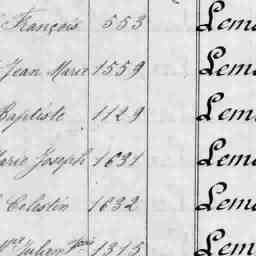 François 553 Lem
Jean Marie 1559 Lem
Baptiste 1129 Lem
Marie Joseph 1631 Lem
Celestin 1632 Lem
Julien 1315 Lem